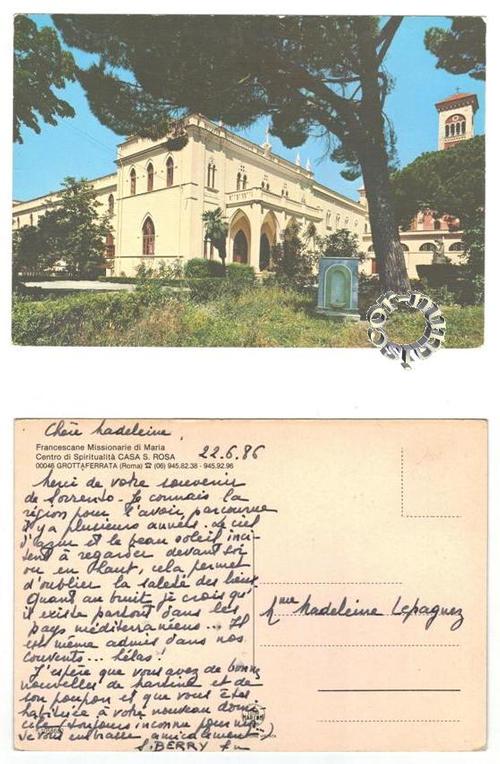 Chère Madeleine,
22.6.86
Francescane Missionarie di Maria
Centro di Spiritualità CASA S. ROSA
00046 GROTTAFERRATA (Roma) ☎ (06) 945.82.38 - 945.92.96
Merci de votre souvenir
de Sorrento. Je connais la
région pour l'avoir parcourue
il y a plusieurs années. Le ciel
d'azur et le beau soleil inci-
tent à regarder devant soi
ou en haut, cela permet
d'oublier la saleté des lieux.
Quant au bruit, je crois qu'
il existe partout dans les
pays méditerranéens... Il
est même admis dans nos
couvents... hélas!
J'espère que vous avez de bonnes
nouvelles de Martine et de
son poupon et que vous êtes
habituée à votre nouveau domi-
cile (toujours inconnu pour moi)
Je vous embrasse amicalement
S. BERRY fmm
Mme Madeleine Lepagnez